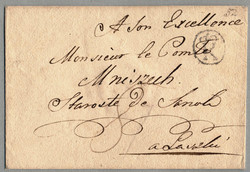 A Son Excellence
Monsieur le Comte
Mniszeh.
Staroste de Sanok
a